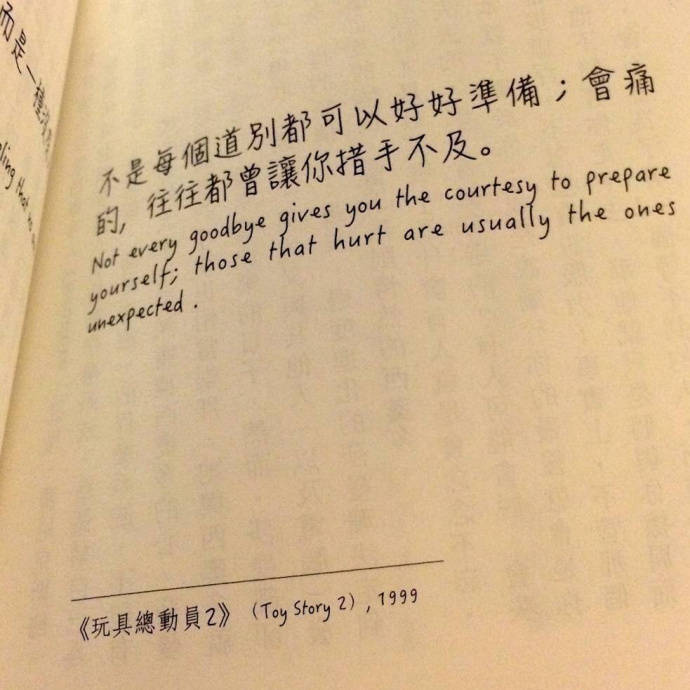 而是一種
不是每個道別都可以好好準備；會痛
的，往往都曾讓你措手不及。
Not every goodbye gives you the courtesy to prepare
yourself; those that hurt are usually the ones
unexpected.
《玩具總動員2》（Toy Story 2）, 1999